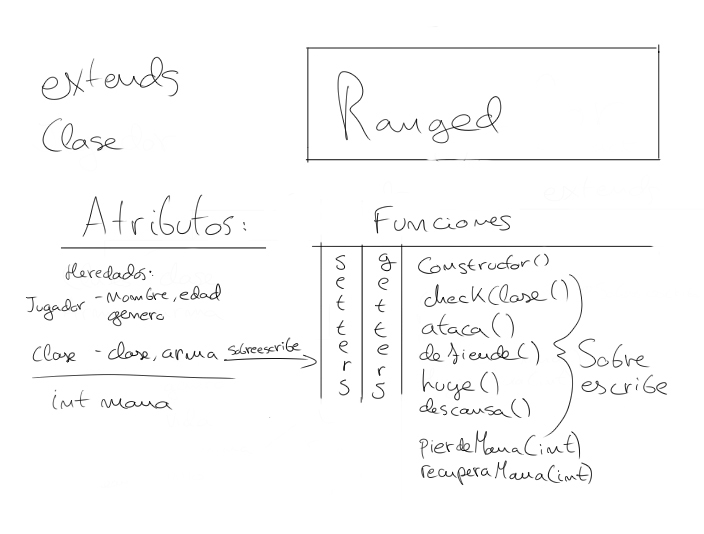 extends
Clase
Ranged
Atributos:
Heredados:
Jugador - Nombre, edad
genero
Clase - clase, arma sobreescribe
int mana
Funciones
setters
getters
Constructor()
checkClase()
ataca()
defiende()
huye()
descansa()
Sobre
escribe
pierdeMana(int)
recuperaMana(int)